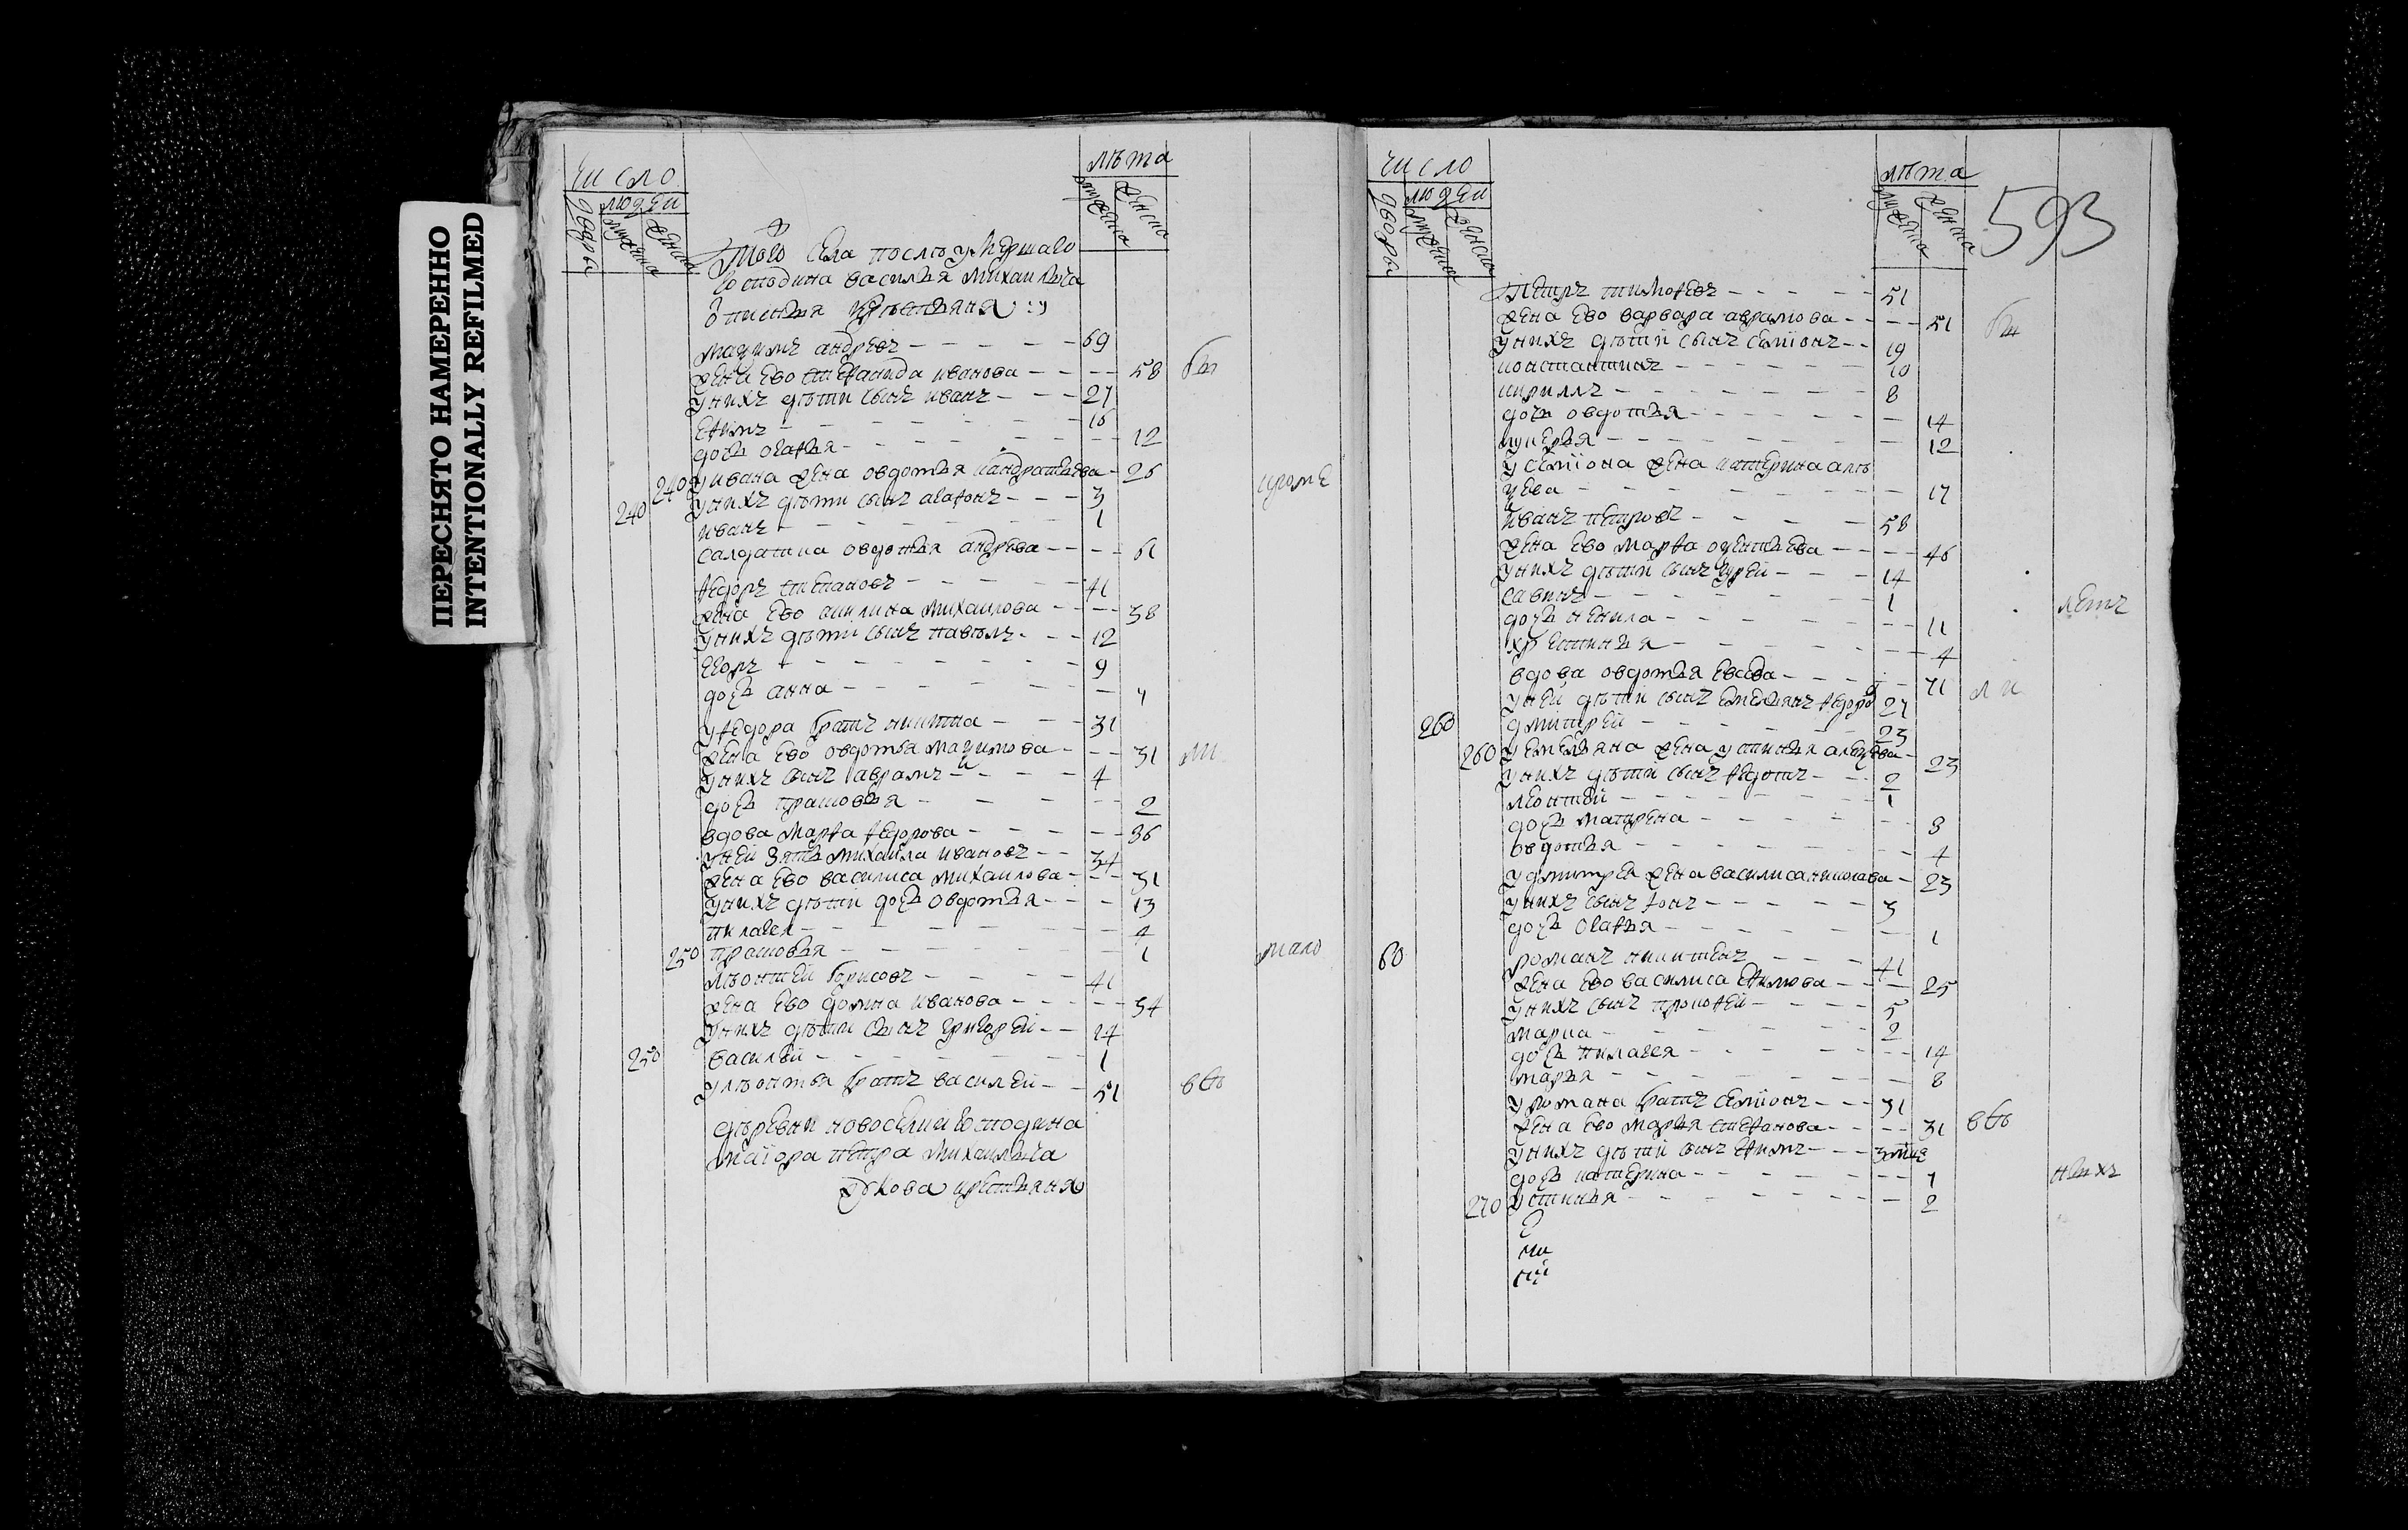 ПЕРЕСНЯТО НАМЕРЕННО
INTENTIONALLY REFILMED
число
людеи
дворы
мужеска
женска
лѣта
мужеска
женска
Того села послѣ умершаго
господина василья михаилыча
крестьяня
мазимъ андреевъ 69
жена ево степанида иванова 58
у нихъ дѣти сынъ иванъ 27
ефимъ 16
дочь огафья 12
240 у ивана жена овдотья кандратьева 26
240 у нихъ дѣти сынъ агафонъ 3
кроме
иванъ 1
салдатка овдотья андрева 61
федоръ степановъ 41
жена ево акилина михаилова 38
у нихъ дѣти сынъ павелъ 12
егоръ 9
дочь анна 4
у федора братъ никита 31
жена ево овдотья мазимова 31
у нихъ сынъ аврамъ 4
дочь прасковья 2
вдова марфа федорова 36
у ней зять михаила ивановъ 34
жена ево василиса михаилова 31
у нихъ дѣти дочь овдотья 13
пилагея 4
250 прасковья 1
мало
лѣонтей борисовъ 41
жена ево домна иванова 34
у нихъ дѣти сынъ григореи 24
250 василей 1
у лѣонтья братъ василеи 51
деревни новоселки господина
маiора петра михаилыча
крестьяня
число
людеи
дворы
мужеска
женска
лѣта
мужеска
женска
593
Петръ тимофевъ 51
жена ево варвара аврамова 51
у нихъ дѣти сынъ семiонъ 19
константинъ 10
кирилъ 8
дочь овдотья 14
лукерья 12
у семiона жена катерина алѣ
зева 17
иванъ петровъ 58
жена ево марфа 46
у нихъ дѣти сынъ гурей 14
савинъ 1
летъ
дочь ненила 11
хрестинья 4
вдова овдотья 71
у ней дѣти сынъ емельянъ федоро 27
260 дмитреи 23
260 у емельяна жена устинья алезева 23
у нихъ дѣти сынъ федотъ 2
леонтей 1
дочь матрена 8
овдотья 4
у дмитрея жена василиса николава 23
у нихъ сынъ фокъ 3
дочь огафья 1
60 романъ никитенъ 41
жена ево василиса ефимова 25
у нихъ сынъ прокофеи 5
марка 2
дочь пилагея 14
марья 8
у романа братъ семiонъ 31
жена ево марья стефанова 31
у нихъ дѣти сынъ ефимъ
дочь катерина 7
нихъ
270 устинья 2